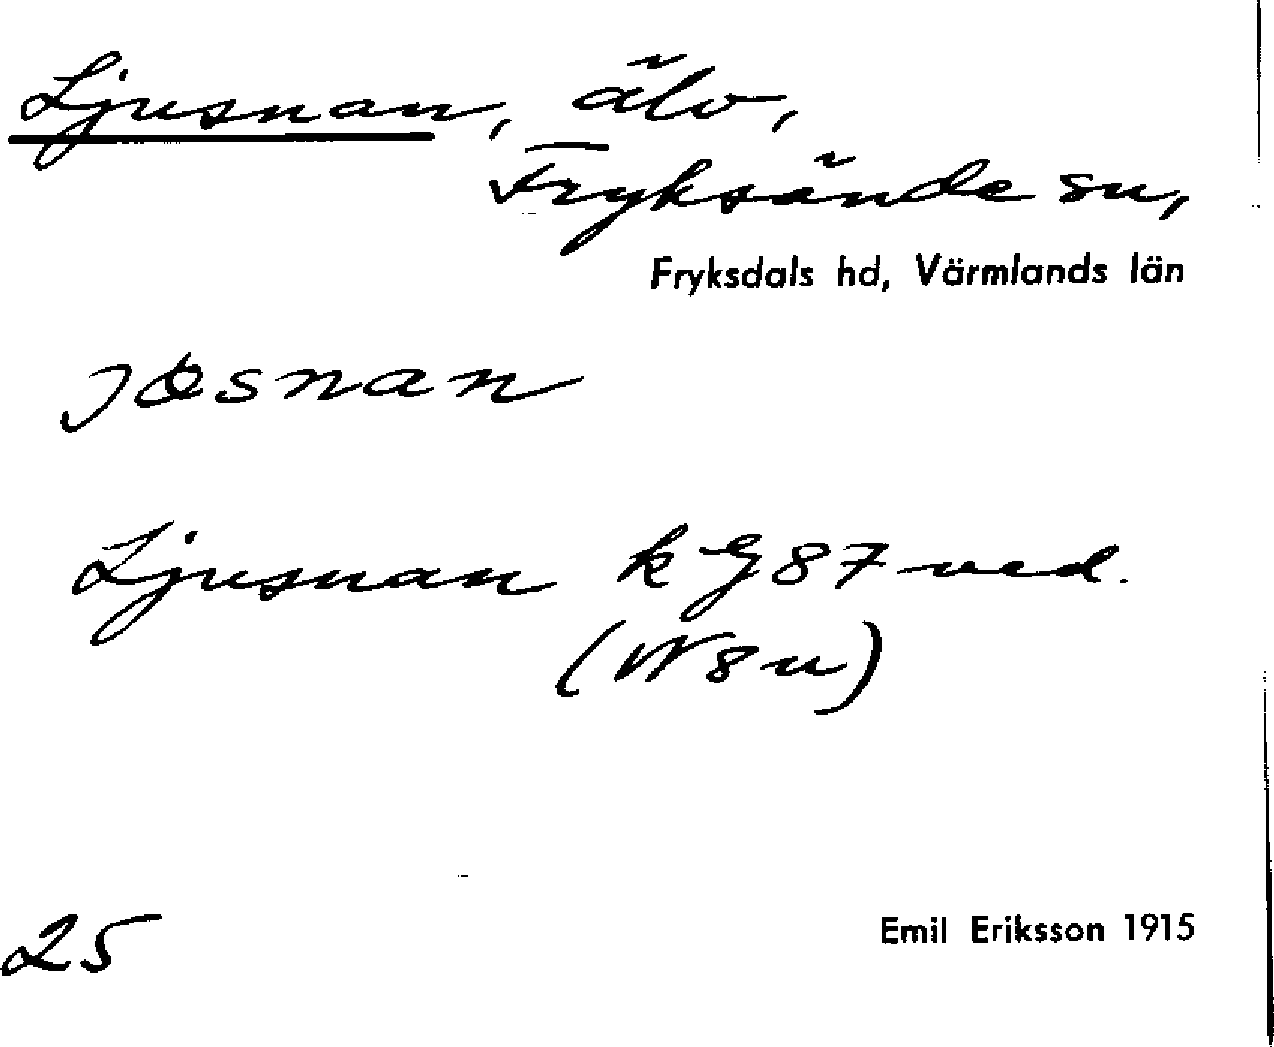 Ljusnan, älv,
Fryksände sn,
Fryksdals hd, Värmlands län
Ljusnan k G 87 ned.
(W 8 u)
25
Emil Eriksson 1915